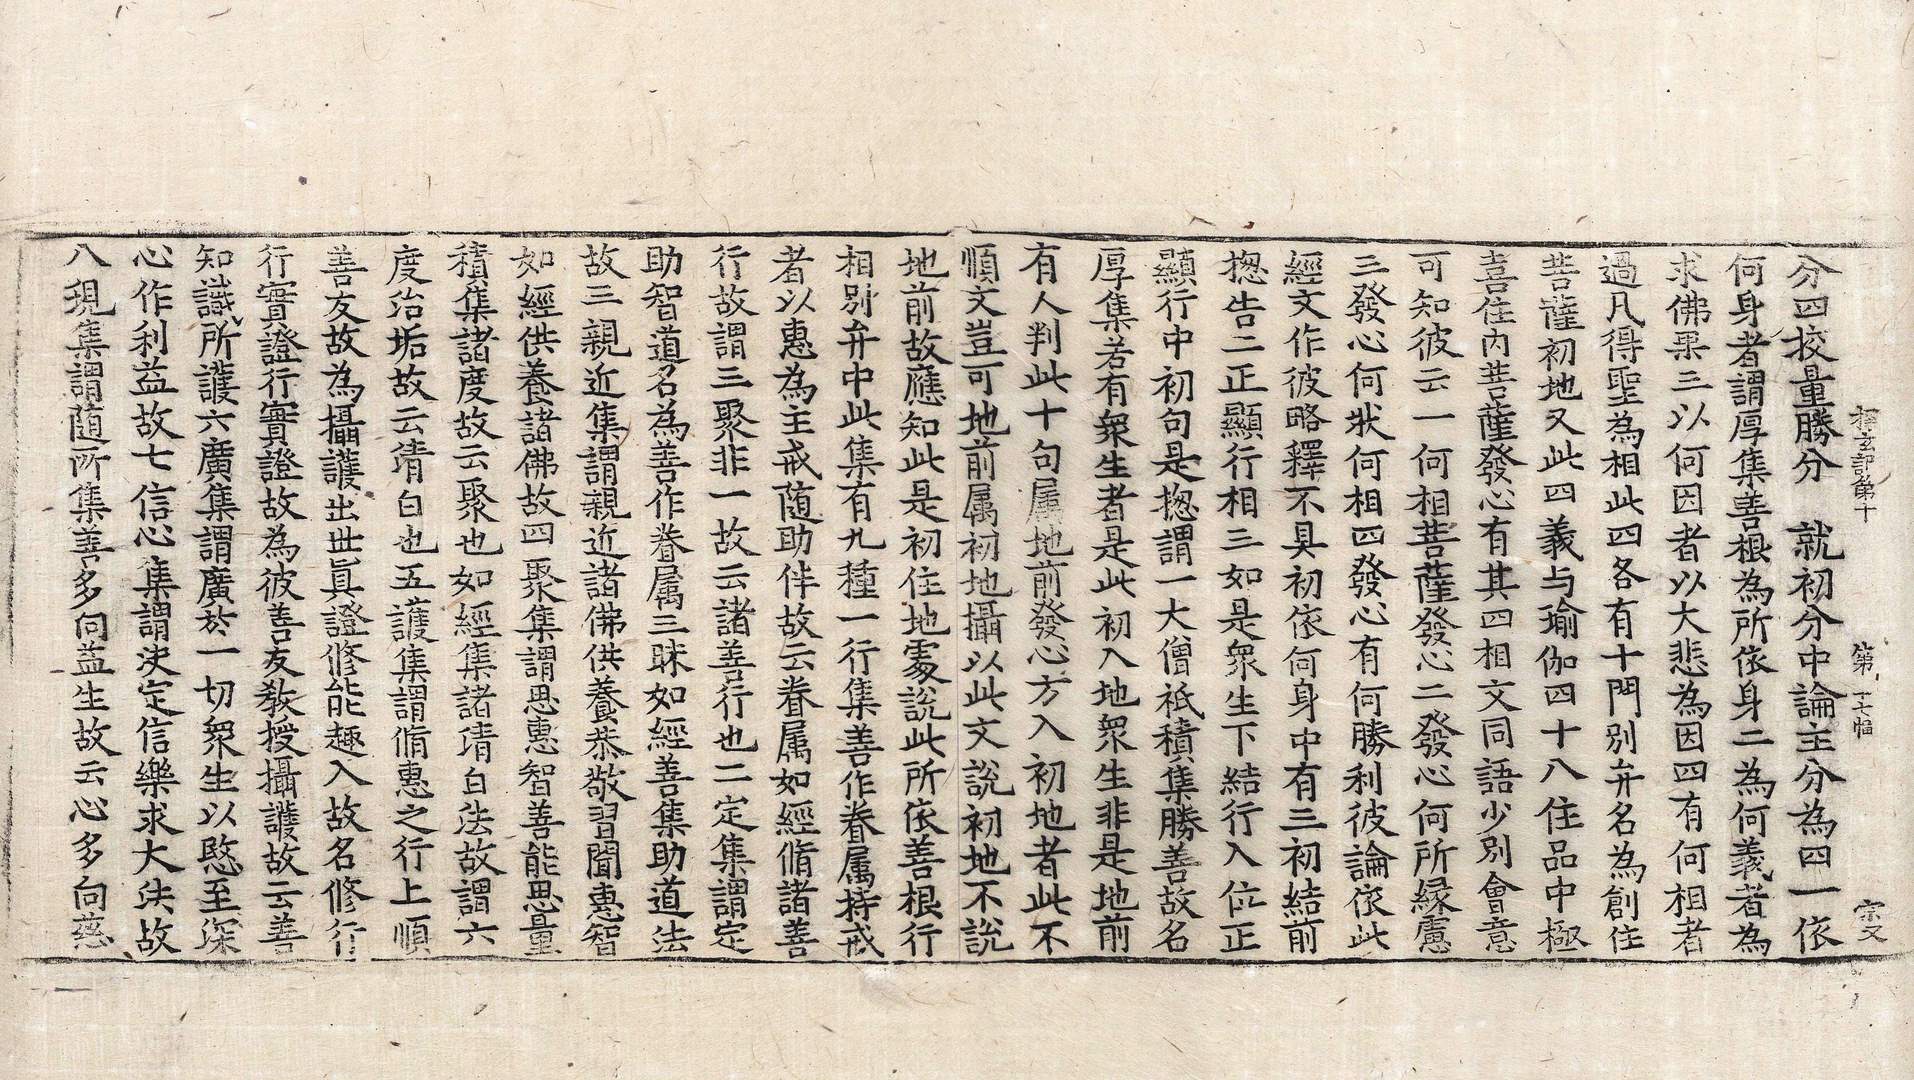 探玄記第十　第十七幅　宗又
分四挍量勝分　就初分中論主分為四一依
何身者謂厚集善根為所依身二為何義者為
求佛果三以何因者以大悲為因四有何相者
過凡得聖為相此四各有十門別弁名為創住
菩薩初地又此四義与瑜伽四十八住品中極
喜住內菩薩發心有其四相文同語少別會意
可知彼云一何相菩薩發心二發心何所縁慮
三發心何狀何相四發心有何勝利彼論依此
經文作彼略釋不具初依何身中有三初結前
揔告二正顯行相三如是衆生下結行入位正
顯行中初句是揔謂一大僧祇積集勝善故名
厚集若有衆生者是此初入地衆生非是地前
有人判此十句属地前發心方入初地者此不
順文豈可地前属初地攝以此文說初地不說
地前故應知此是初住地處說此所依善根行
相別弁中此集有九種一行集善作眷属持戒
者以惠為主戒随助伴故云眷属如經脩諸善
行故謂三聚非一故云諸善行也二定集謂定
助智道名為善作眷属三昧如經善集助道法
故三親近集謂親近諸佛供養恭敬習聞惠智
如經供養諸佛故四聚集謂思惠智善能思量
積集諸度故云聚也如經集諸清白法故謂六
度治垢故云清白也五護集謂脩惠之行上順
善友故為攝護出世眞證修能趣入故名修行
行實證行實證故為彼善友敎授攝護故云善
知識所護六廣集謂廣於一切衆生以愍至深
心作利益故七信心集謂決定信樂求大法故
八現集謂随所集善多向益生故云心多向慈